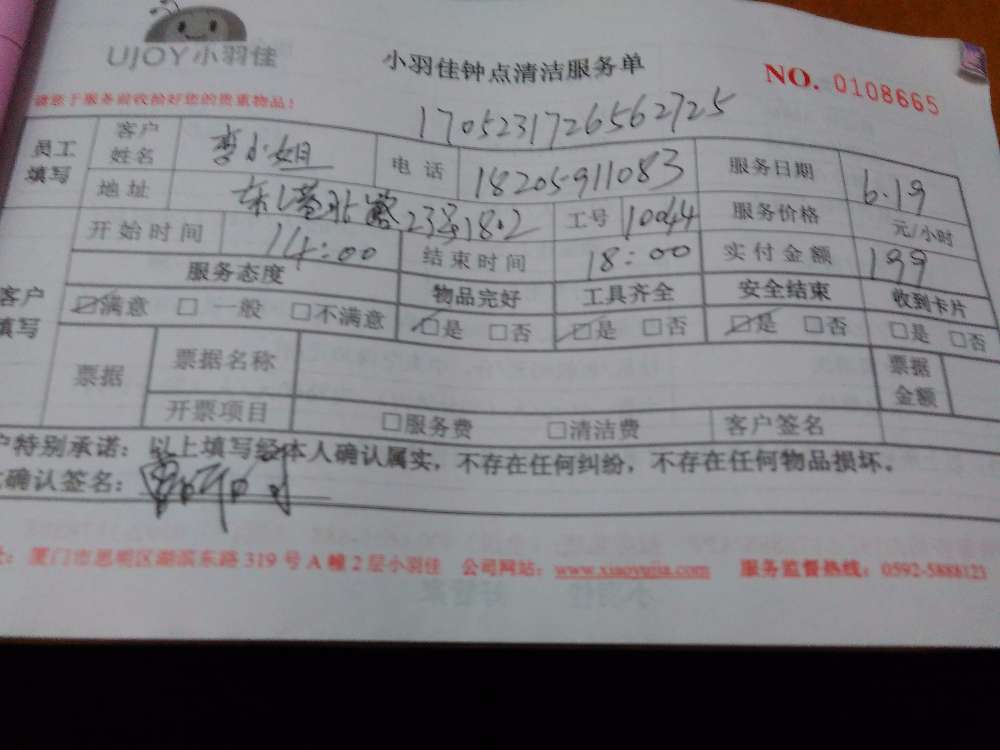 UJOY小羽佳
小羽佳钟点清洁服务单
NO. 0108665
请您于服务前收拾好您的贵重物品!
1705231726562725
员工填写
客户姓名 李小姐 电话 18205911083 服务日期 6.19
地址 东 北路23号1802 工号 10044 服务价格 元/小时
开始时间 14:00 结束时间 18:00 实付金额 199
客户填写
服务态度 物品完好 工具齐全 安全结束 收到卡片
☑满意 □一般 □不满意 ☑是 □否 ☑是 □否 ☑是 □否 □是 □否
票据 票据名称 票据金额
开票项目 □服务费 □清洁费 客户签名
户特别承诺：以上填写经本人确认属实，不存在任何纠纷，不存在任何物品损坏。
确认签名：
址：厦门市思明区湖滨东路 319 号 A 幢 2 层小羽佳 公司网站：www.xiaoyujia.com 服务监督热线：0592-5888123